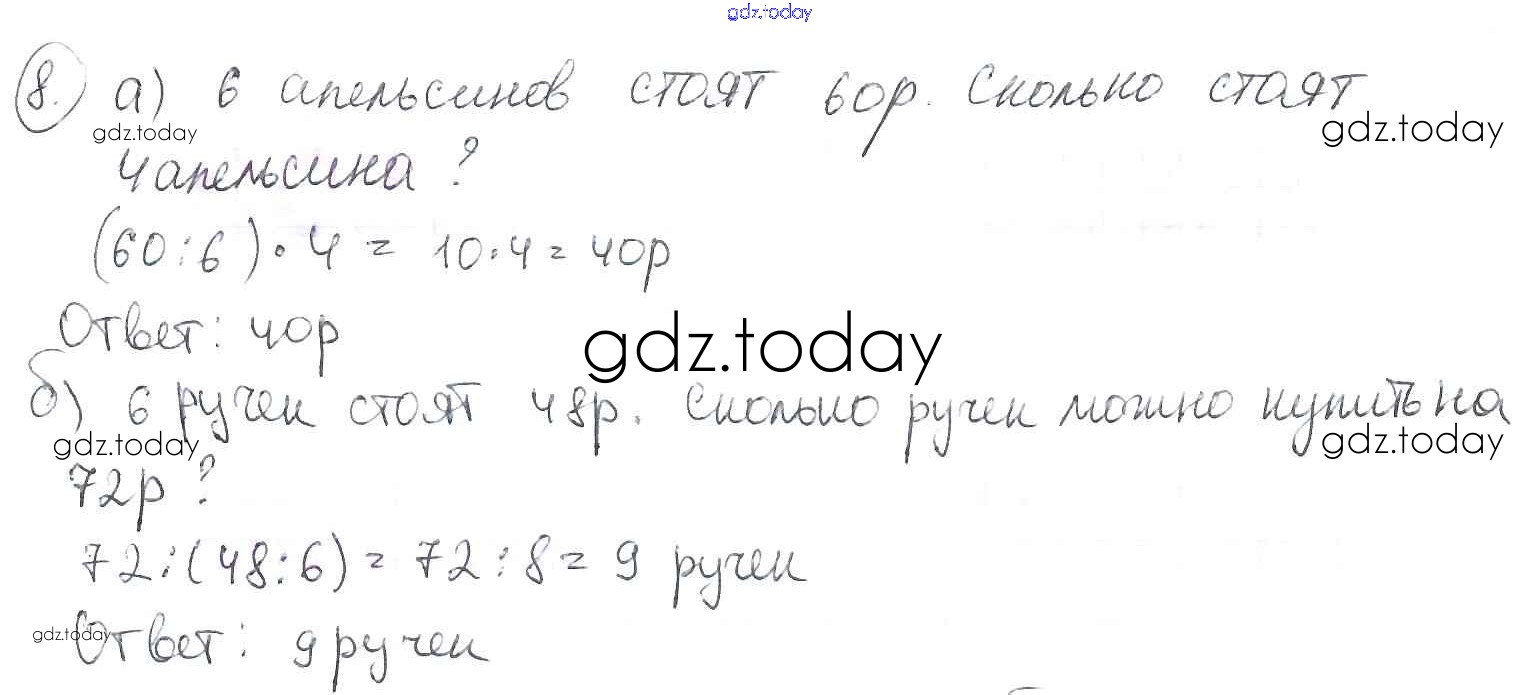 gdz.today
8. а) 6 апельсинов стоят 60р. Сколько стоят
gdz.today
gdz.today
4 апельсина?
(60:6)·4 = 10·4 = 40р
Ответ: 40р
gdz.today
б) 6 ручек стоят 48р. Сколько ручек можно купить на
gdz.today
gdz.today
72р?
72:(48:6) = 72:8 = 9 ручек
gdz.today
Ответ: 9 ручек